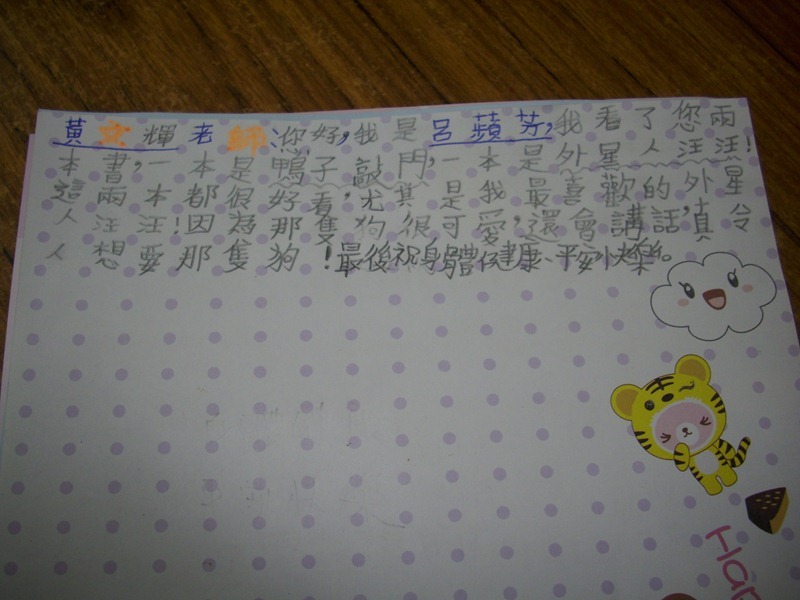 黃文輝老師:您好,我是呂蘋芽,我看了您兩
本書,一本是鴨子敲門,一本是外星人汪汪!
這兩本都很好看,尤其是我最喜歡的外星
人汪汪!因為那隻狗很可愛,還會講話,真令
人想要那隻狗!最後祝身體健康、平安快樂。
Har